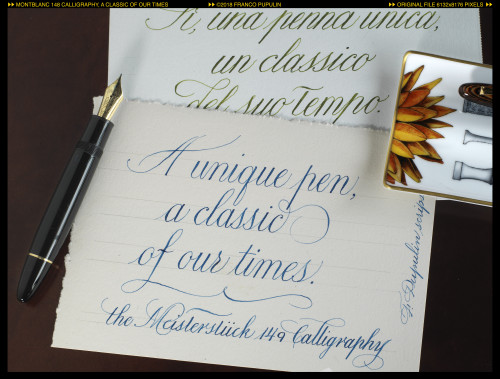 MONTBLANC 149 CALLIGRAPHY, A CLASSIC OF OUR TIMES
©2018 FRANCO PUPULIN
ORIGINAL FILE 6132x8176 PIXELS
una penna unica,
un classico
del suo tempo.
A unique pen,
a classic
of our times.
the Meisterstück 149 Calligraphy
Pupulin scrips